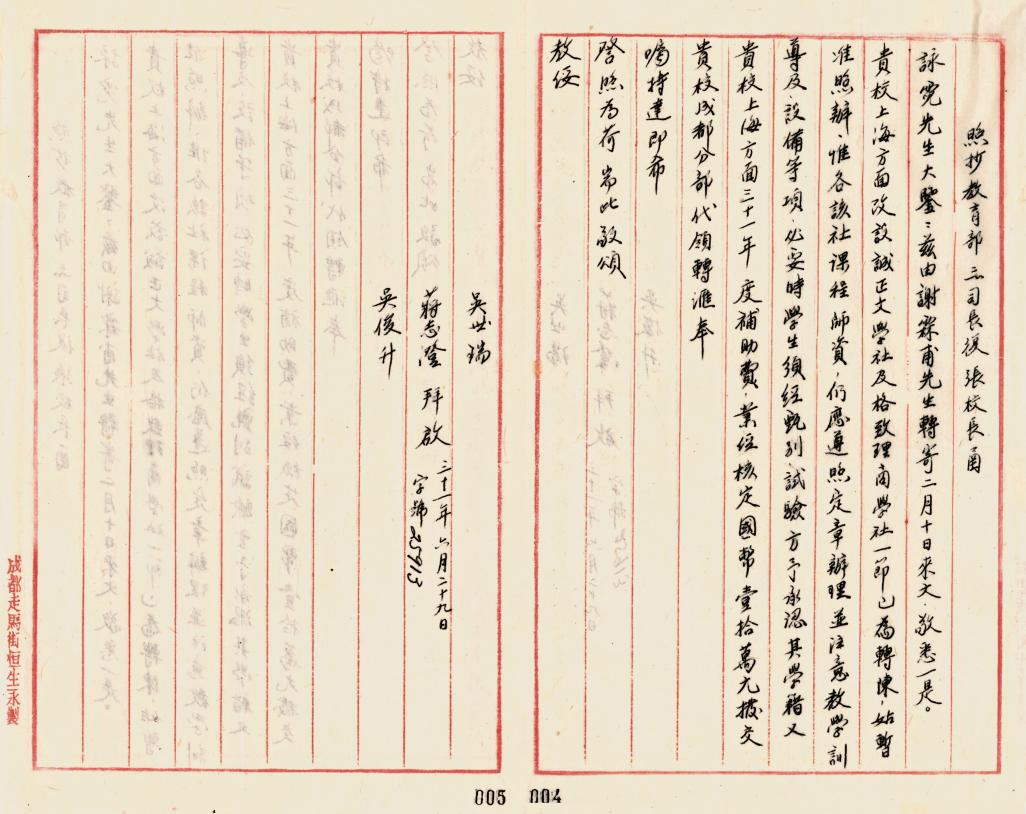 照抄教育部三司長復張校長函
詠霓先生大鑒：茲由謝霖甫先生轉寄二月十日來文，敬悉一是。
貴校上海方面改設誠正文學社及格致理商學社一節已為轉陳，姑暫
准照辦，惟各該社課程師資，仍應遵照定章辦理並注意教學訓
導及設備等項，必要時學生須經甄別試驗方予承認其學籍又
貴校上海方面三十一年度補助費，業經核定國幣壹拾萬元撥交
貴校成都分部代領轉滙奉
囑特達即希
詧照為荷耑此敬頌
教綏
吳世瑞
蔣志澄 拜啟 三十一年六月二十九日
字號25913
吳俊升
成都走馬街恒生永製
005 004